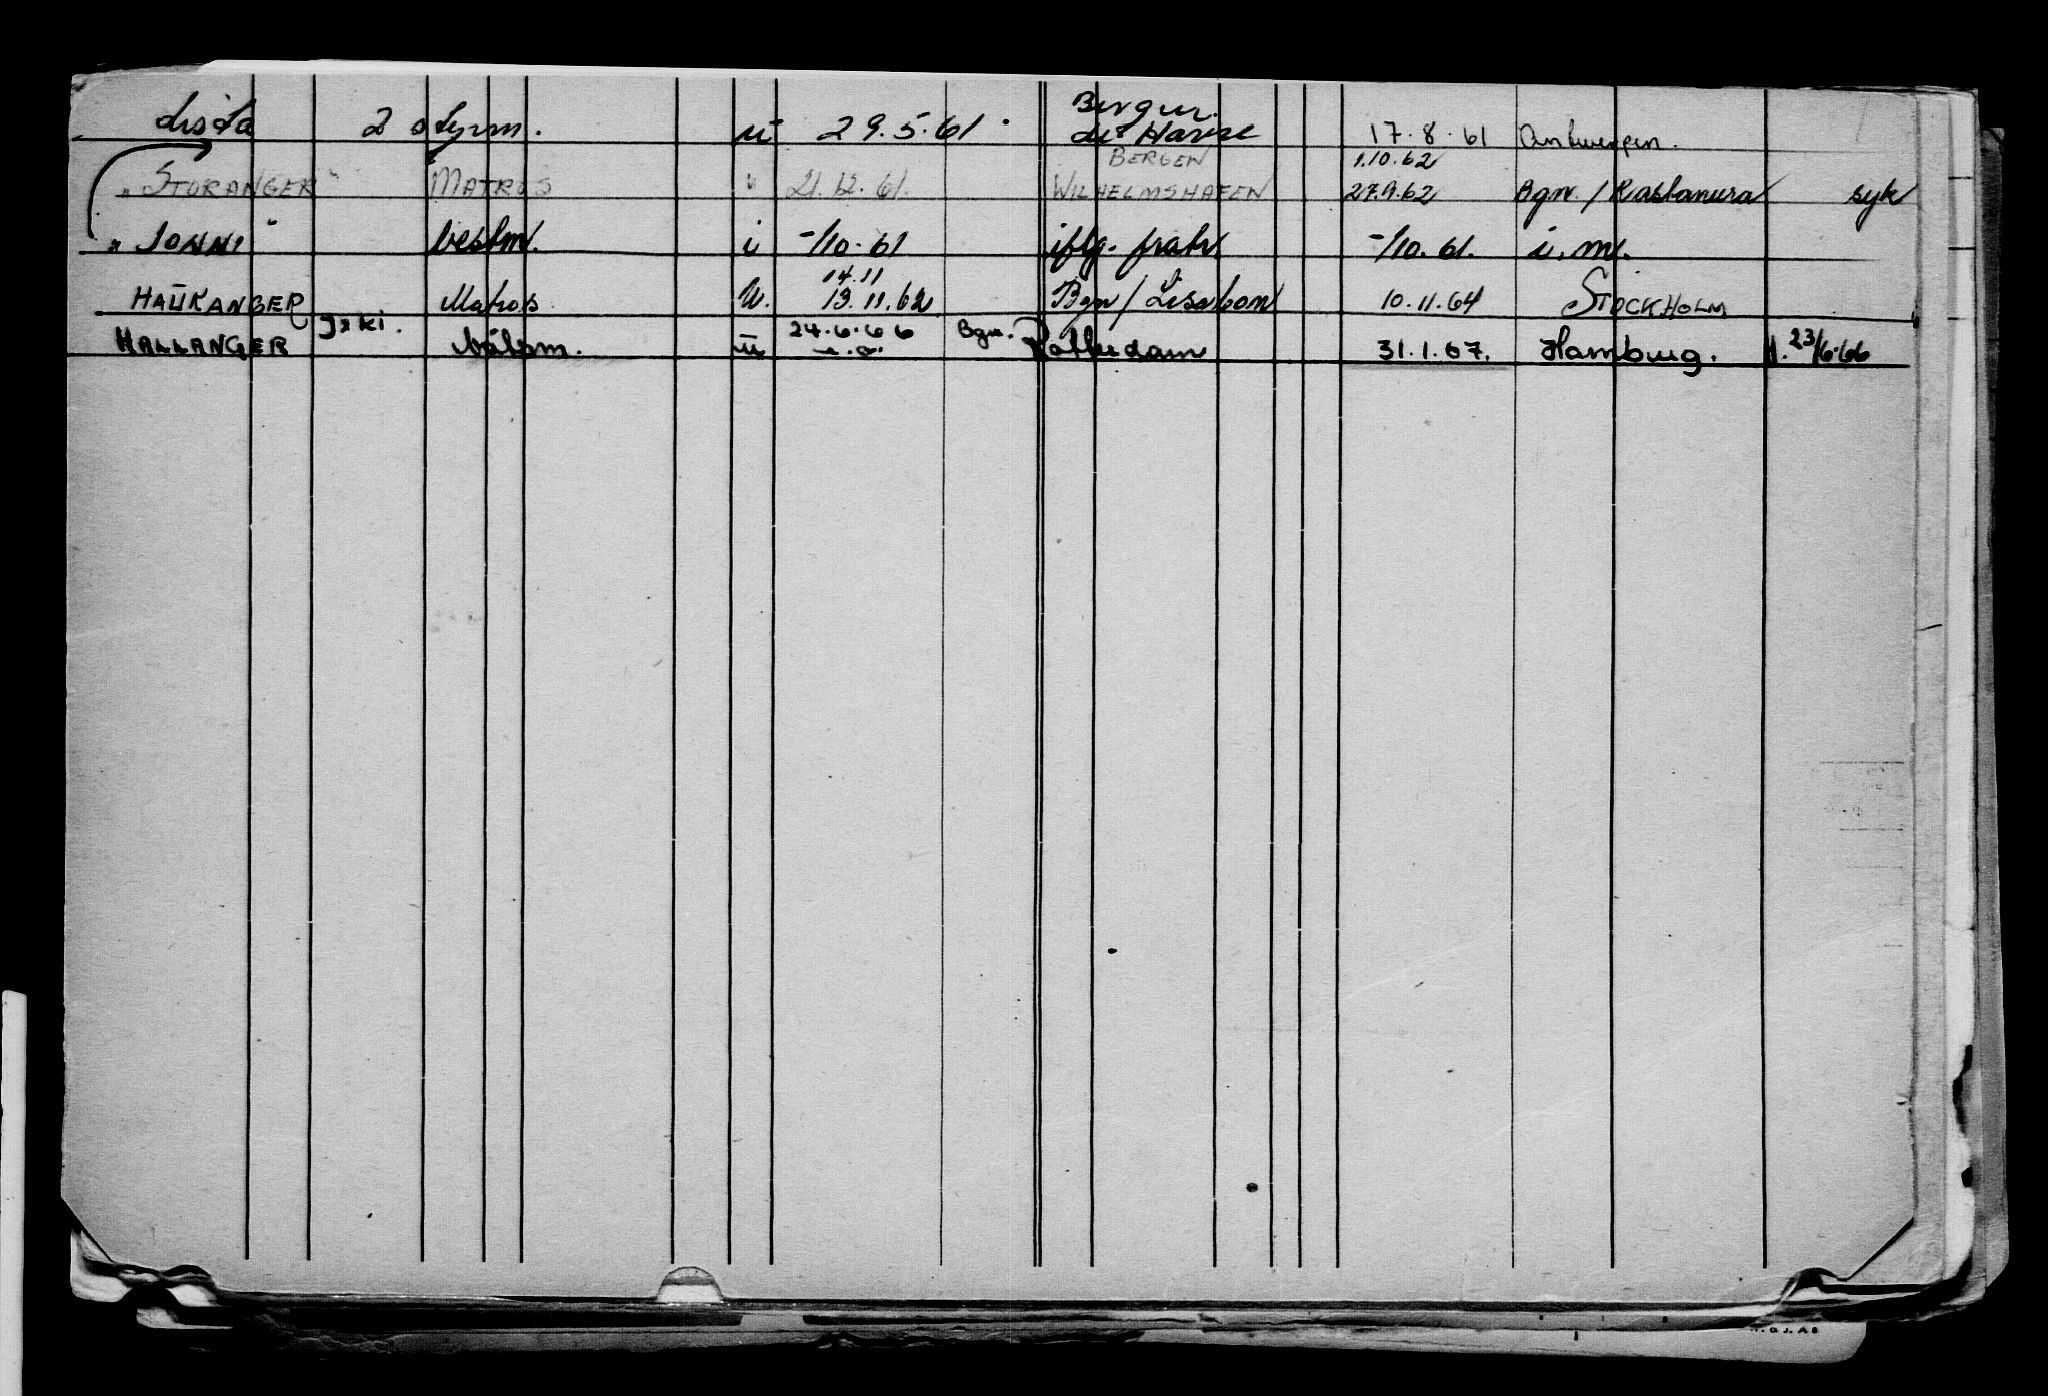 Lista 2 styrm. u 29.5.61. Bergen Le Havre 17.8.61 Antwerpen.
"STORANGER" MATROS u 21.12.61. BERGEN WILHELMSHAFEN 1.10.62 27.9.62 Bgn. / syk
"SONNI" i -/10.61 iflg. -/10.61. i.m.
HAUKANGER Matros U. 14.11 13.11.62 Bgn / Lisabon 10.11.64 STOCKHOLM
HALLANGER Båtsm. u 24.6.66 Bgn. Rotterdam 31.1.67. Hamburg. 23/6.66